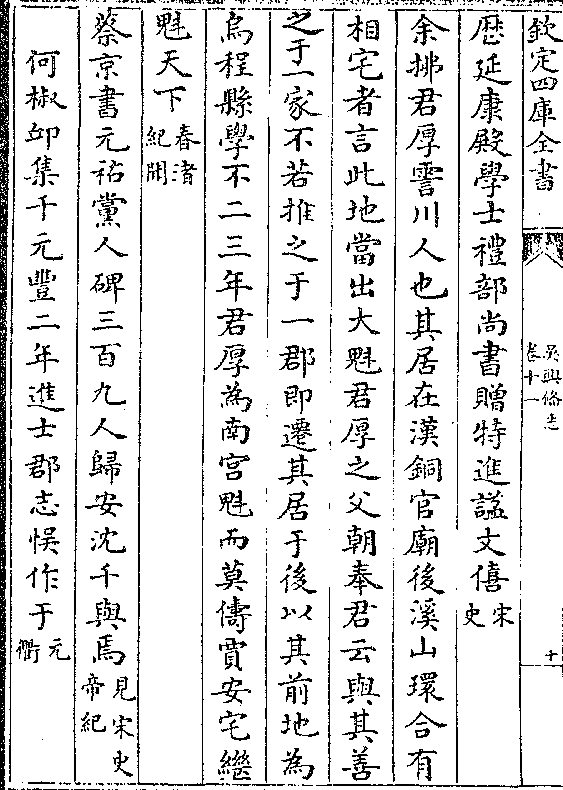 欽定四庫全書
吳興備志
卷十一
十
歷延康殿學士禮部尚書贈特進諡文僖宋史
余拂君厚霅川人也其居在漢銅官廟後溪山環合有
相宅者言此地當出大魁君厚之父朝奉君云與其善
之于一家不若推之于一郡即遷其居于後以其前地為
烏程縣學不二三年君厚為南宮魁而莫儔賈安宅繼
魁天下春渚紀聞
蔡京書元祐黨人碑三百九人歸安沈千與焉見宋史帝紀
何椒邱集千元豐二年進士郡志悞作于元衢